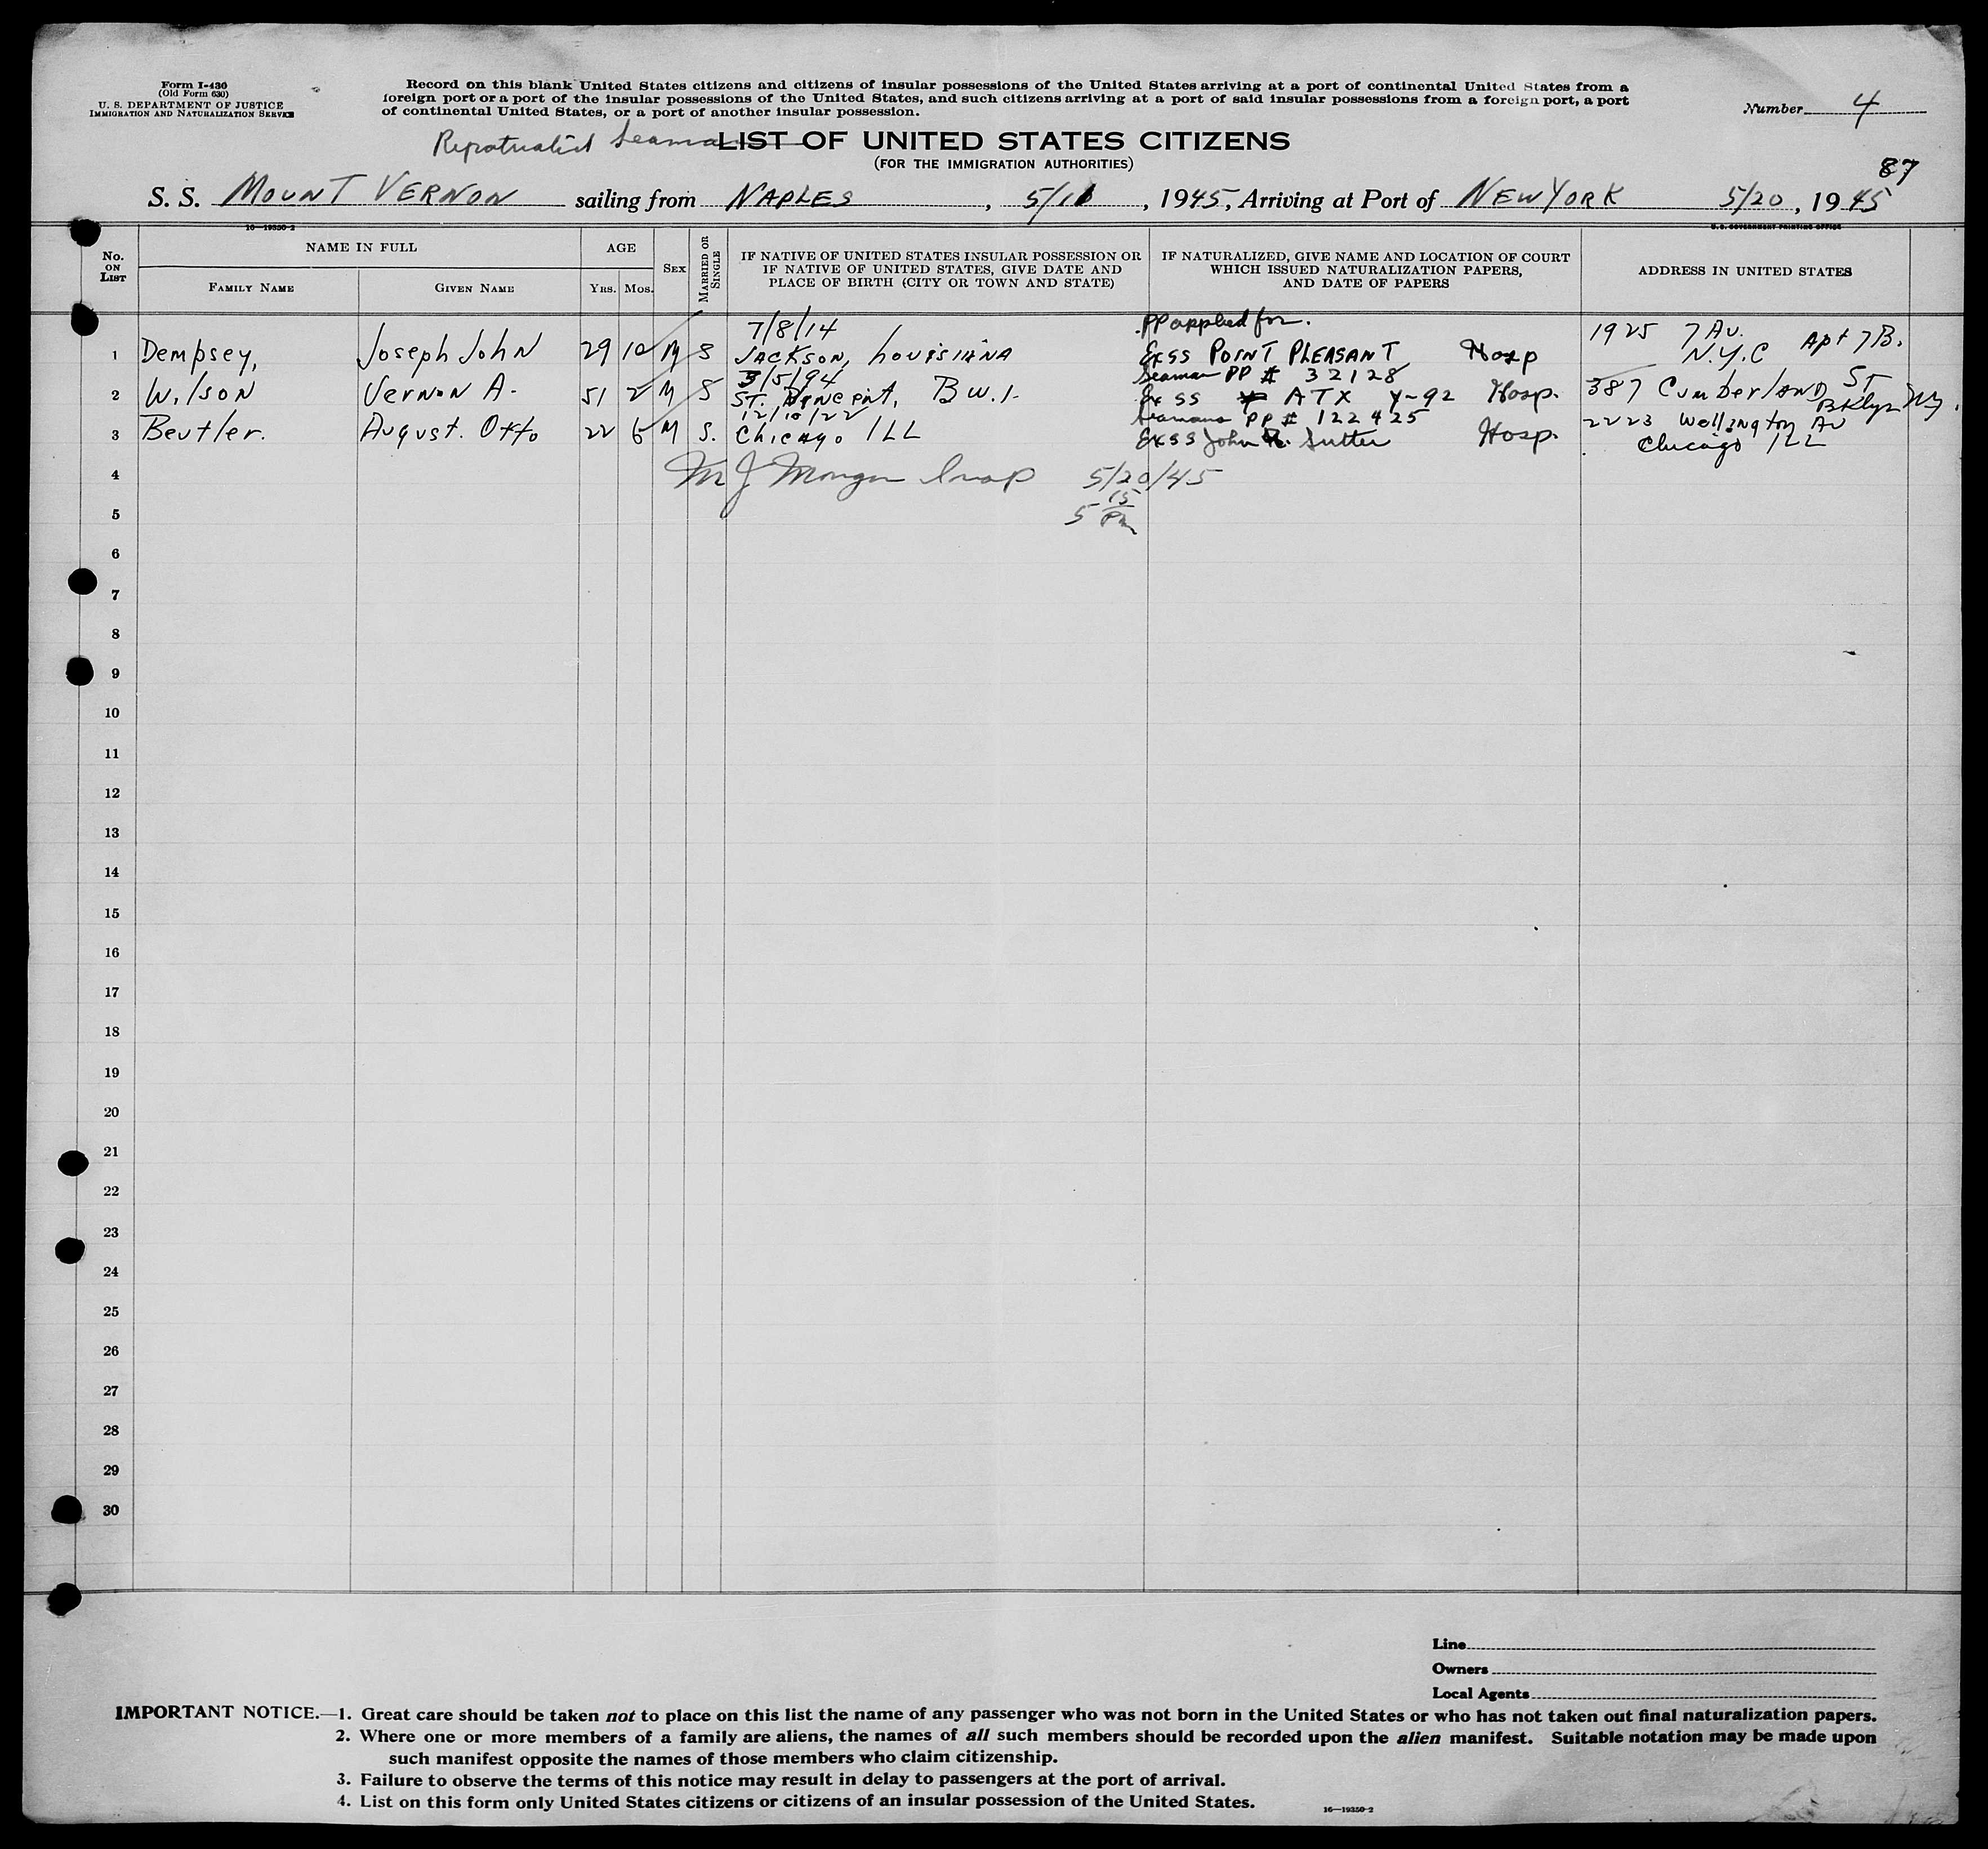 Form I-430
(Old Form 630)
U. S. DEPARTMENT OF JUSTICE
IMMIGRATION AND NATURALIZATION SERVICE
Record on this blank United States citizens and citizens of insular possessions of the United States arriving at a port of continental United States from a
foreign port or a port of the insular possessions of the United States, and such citizens arriving at a port of said insular possessions from a foreign port, a port
of continental United States, or a port of another insular possession.
Number 4
LIST OF UNITED STATES CITIZENS
(FOR THE IMMIGRATION AUTHORITIES)
87
S. S. MOUNT VERNON sailing from NAPLES, 5/11, 1945, Arriving at Port of NEW YORK 5/20, 1945
16—19350-2
U. S. GOVERNMENT PRINTING OFFICE
No. ON LIST
NAME IN FULL
FAMILY NAME
GIVEN NAME
AGE
YRS. MOS.
SEX
MARRIED OR SINGLE
IF NATIVE OF UNITED STATES INSULAR POSSESSION OR
IF NATIVE OF UNITED STATES, GIVE DATE AND
PLACE OF BIRTH (CITY OR TOWN AND STATE)
IF NATURALIZED, GIVE NAME AND LOCATION OF COURT
WHICH ISSUED NATURALIZATION PAPERS,
AND DATE OF PAPERS
ADDRESS IN UNITED STATES
7/8/14 PP applied for. 1925 7 Av. Apt 7B.
1 Dempsey, Joseph John 29 10 M S JACKSON, LOUISIANA Ex SS POINT PLEASANT Hosp N.Y.C
3/5/94 Seaman PP # 32128
2 Wilson Vernon A. 51 2 M S ST. Vincent, B.W.I. Ex SS ATX Y-92 Hosp. 387 Cumberland ST Bklyn NY.
12/10/22 Seamans PP # 122425 2223 Wellington Av
3 Beutler. August. Otto 22 5 M S. Chicago ILL Ex SS John A. Sutter Hosp. Chicago ILL
4 M J Morgan Insp 5/20/45
5 5 15 PM
6
7
8
9
10
11
12
13
14
15
16
17
18
19
20
21
22
23
24
25
26
27
28
29
30
Line
Owners
Local Agents
IMPORTANT NOTICE.—1. Great care should be taken not to place on this list the name of any passenger who was not born in the United States or who has not taken out final naturalization papers.
2. Where one or more members of a family are aliens, the names of all such members should be recorded upon the alien manifest. Suitable notation may be made upon
such manifest opposite the names of those members who claim citizenship.
3. Failure to observe the terms of this notice may result in delay to passengers at the port of arrival.
4. List on this form only United States citizens or citizens of an insular possession of the United States.
16—19350-2